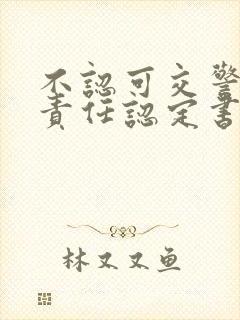 不認可交警
責任認定書
林又又鱼